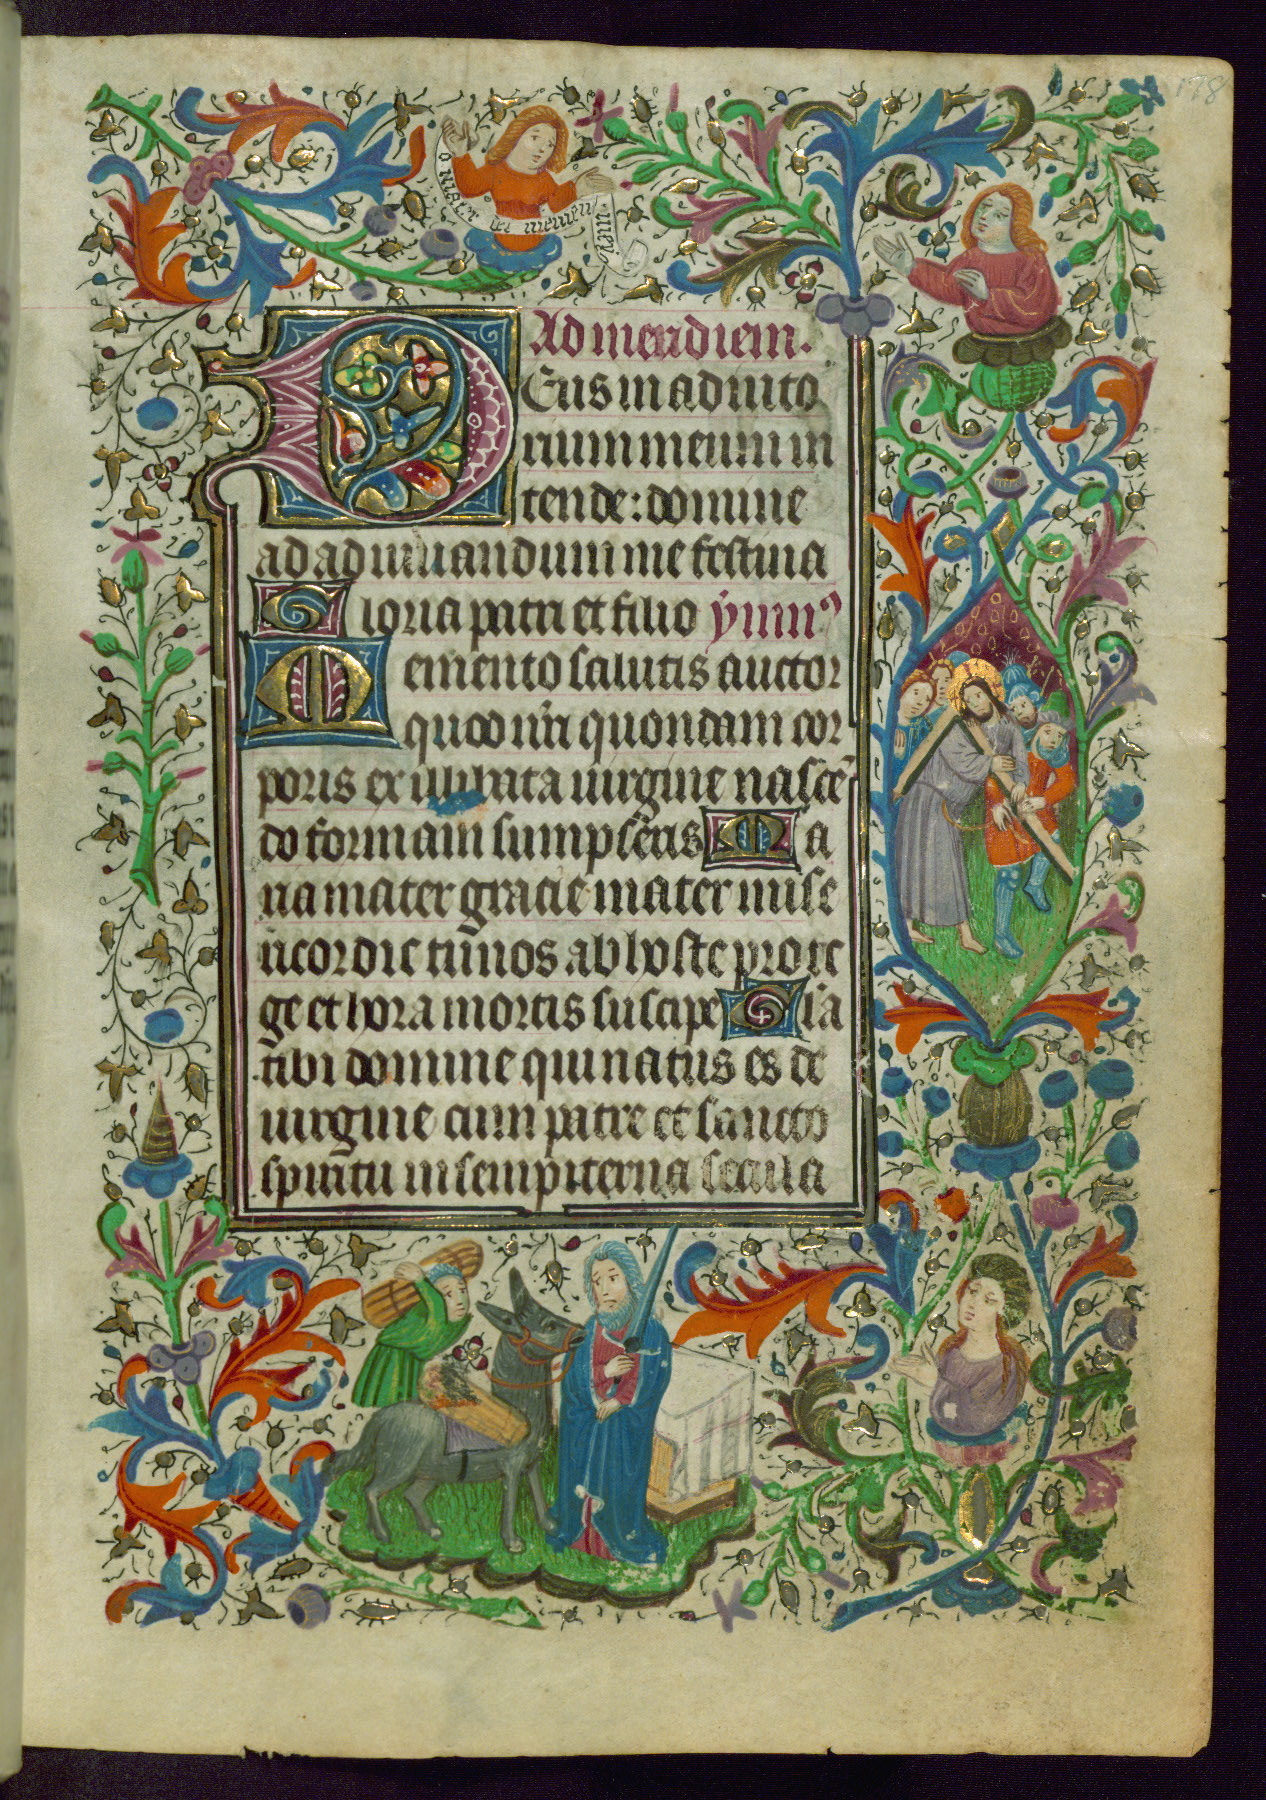 178
o mater dei memen
Ad meridiem.
Eus in adiuto
rium meum in
tende: domine
ad adiuuandum me festina
Gloria patri et filio ymn9
Memento salutis auctor
quod nr̄i quondam cor
poris ex illibata uirgine nascē
do formam sumpseris Ma
ria mater gracie mater mise
ricordie tu nos ab hoste prote
ge et hora mortis suscipe Gl̄a
tibi domine qui natus es de
uirgine cum patre et sancto
spiritu in sempiterna secula